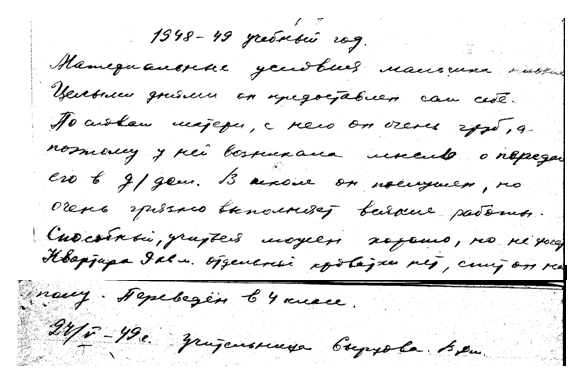 1948-49 учебный год.
Материальные условия мальчика
Целыми днями он предоставлен сам себе.
По словам матери, с нею он очень груб, а
поэтому у ней возникала мысль о передаче
его в д/дом. В школе он послушен, но
очень грязно выполняет всякие работы.
Способный, учиться может хорошо, но не хочет
Квартира 9 кв м. отдельной кроватки нет, спит он на
полу. Переведён в 4 класс.
24/V-49 г. учительница